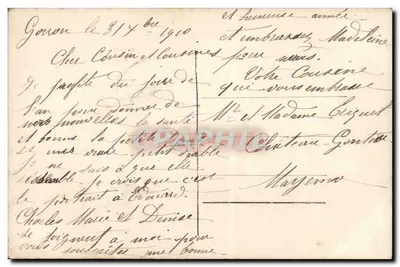 Gorron le 31 Xbre 1910
Cher Cousin et Cousines
Je profite du jour de
l'an pour donner de
nos nouvelles la santé
et bonne la petite
est une vraie petit diable
je ne sais à que elle
ressemble je crois que c'est
le portrait à Edouard.
Charles Marie et Denise
se joignent à moi pour
vous souhaiter une bonne
et heureuse année
et embrassez Madeleine
pour nous.
Votre Cousine
qui vous embrasse
Mr et Madame
Château-Gontier
Mayenne